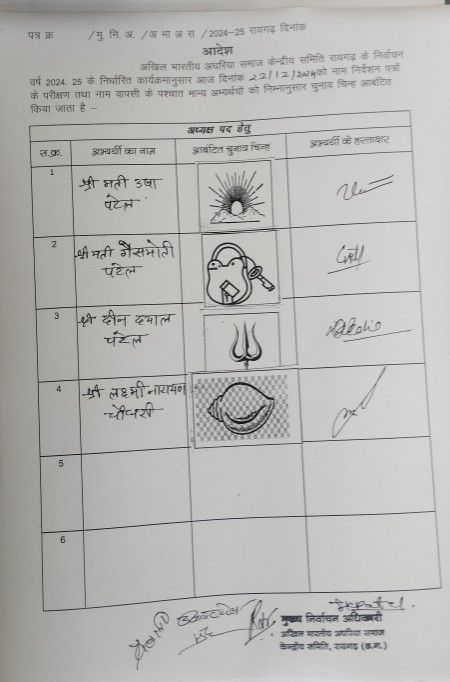 पत्र क्र /मु. नि. अ. /अ भा अ स /2024-25 रायगढ़ दिनांक
आदेश
अखिल भारतीय अघरिया समाज केन्द्रीय समिति रायगढ़ के निर्वाचन
वर्ष 2024. 25 के निर्धारित कार्यक्रमानुसार आज दिनांक 22/12/2024को नाम निर्देशन पत्रों
के परीक्षण तथा नाम वापसी के पश्चात मान्य अभ्यर्थियों को निम्नानुसार चुनाव चिन्ह आबंटित
किया जाता है –
अध्यक्ष पद हेतु
स.क्र. अभ्यर्थी का नाम आबंटित चुनाव चिन्ह अभ्यर्थी के हस्ताक्षर
1 श्री मती उषा
पटेल
2 श्रीमती गैसमोती
पटेल
3 श्री दीन दयाल
पटेल
4 श्री लक्ष्मीनारायण
चौधरी
5
6
मुख्य निर्वाचन अधिकारी
अखिल भारतीय अघरिया समाज
केन्द्रीय समिति, रायगढ़ (छ.ग.)